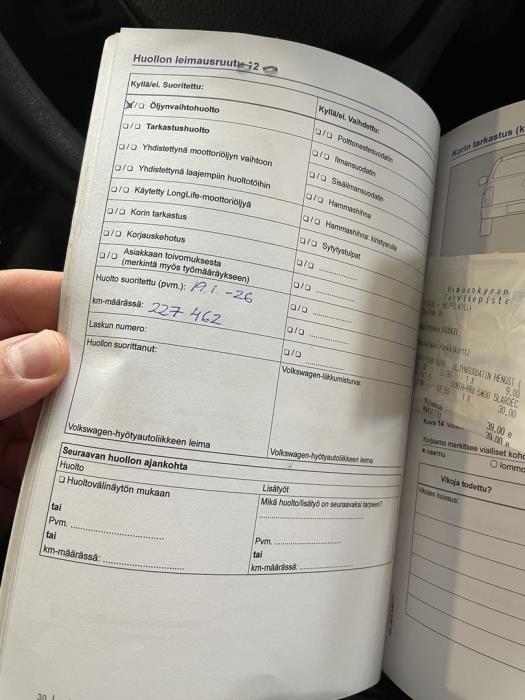 Huollon leimausruutu 12
Kyllä/ei. Suoritettu:
Öljynvaihtohuolto
Tarkastushuolto
Yhdistettynä moottoriöljyn vaihtoon
Yhdistettynä laajempiin huoltotöihin
Käytetty LongLife-moottoriöljyä
Korin tarkastus
Korjauskehotus
Asiakkaan toivomuksesta
(merkintä myös työmääräykseen)
Huolto suoritettu (pvm.): 19.1 -26
km-määrässä: 227 462
Laskun numero:
Huollon suorittanut:
Volkswagen-hyötyautoliikkeen leima
Kyllä/ei. Vaihdettu:
Polttonestesuodatin
Ilmansuodatin
Sisäilmansuodatin
Hammashihna
Hammashihna: kiristysrulla
Sytytystulpat
Volkswagen-liikkumisturva:
Volkswagen-hyötyautoliikkeen leima
Seuraavan huollon ajankohta
Huolto
Huoltovälinäytön mukaan
tai
Pvm.
tai
km-määrässä:
Lisätyöt
Mikä huolto/lisätyö on seuraavaksi tarpeen?
Pvm.
tai
km-määrässä:
30
Korin tarkastus (k
Hämeenkyrön
Tarvikepiste
HENGST
9,00
5W30
30,00
39,00 e
39,00 e
Korjaamo merkitsee vialliset koh
lomm
Vikoja todettu?
Vikojen kuvaus: